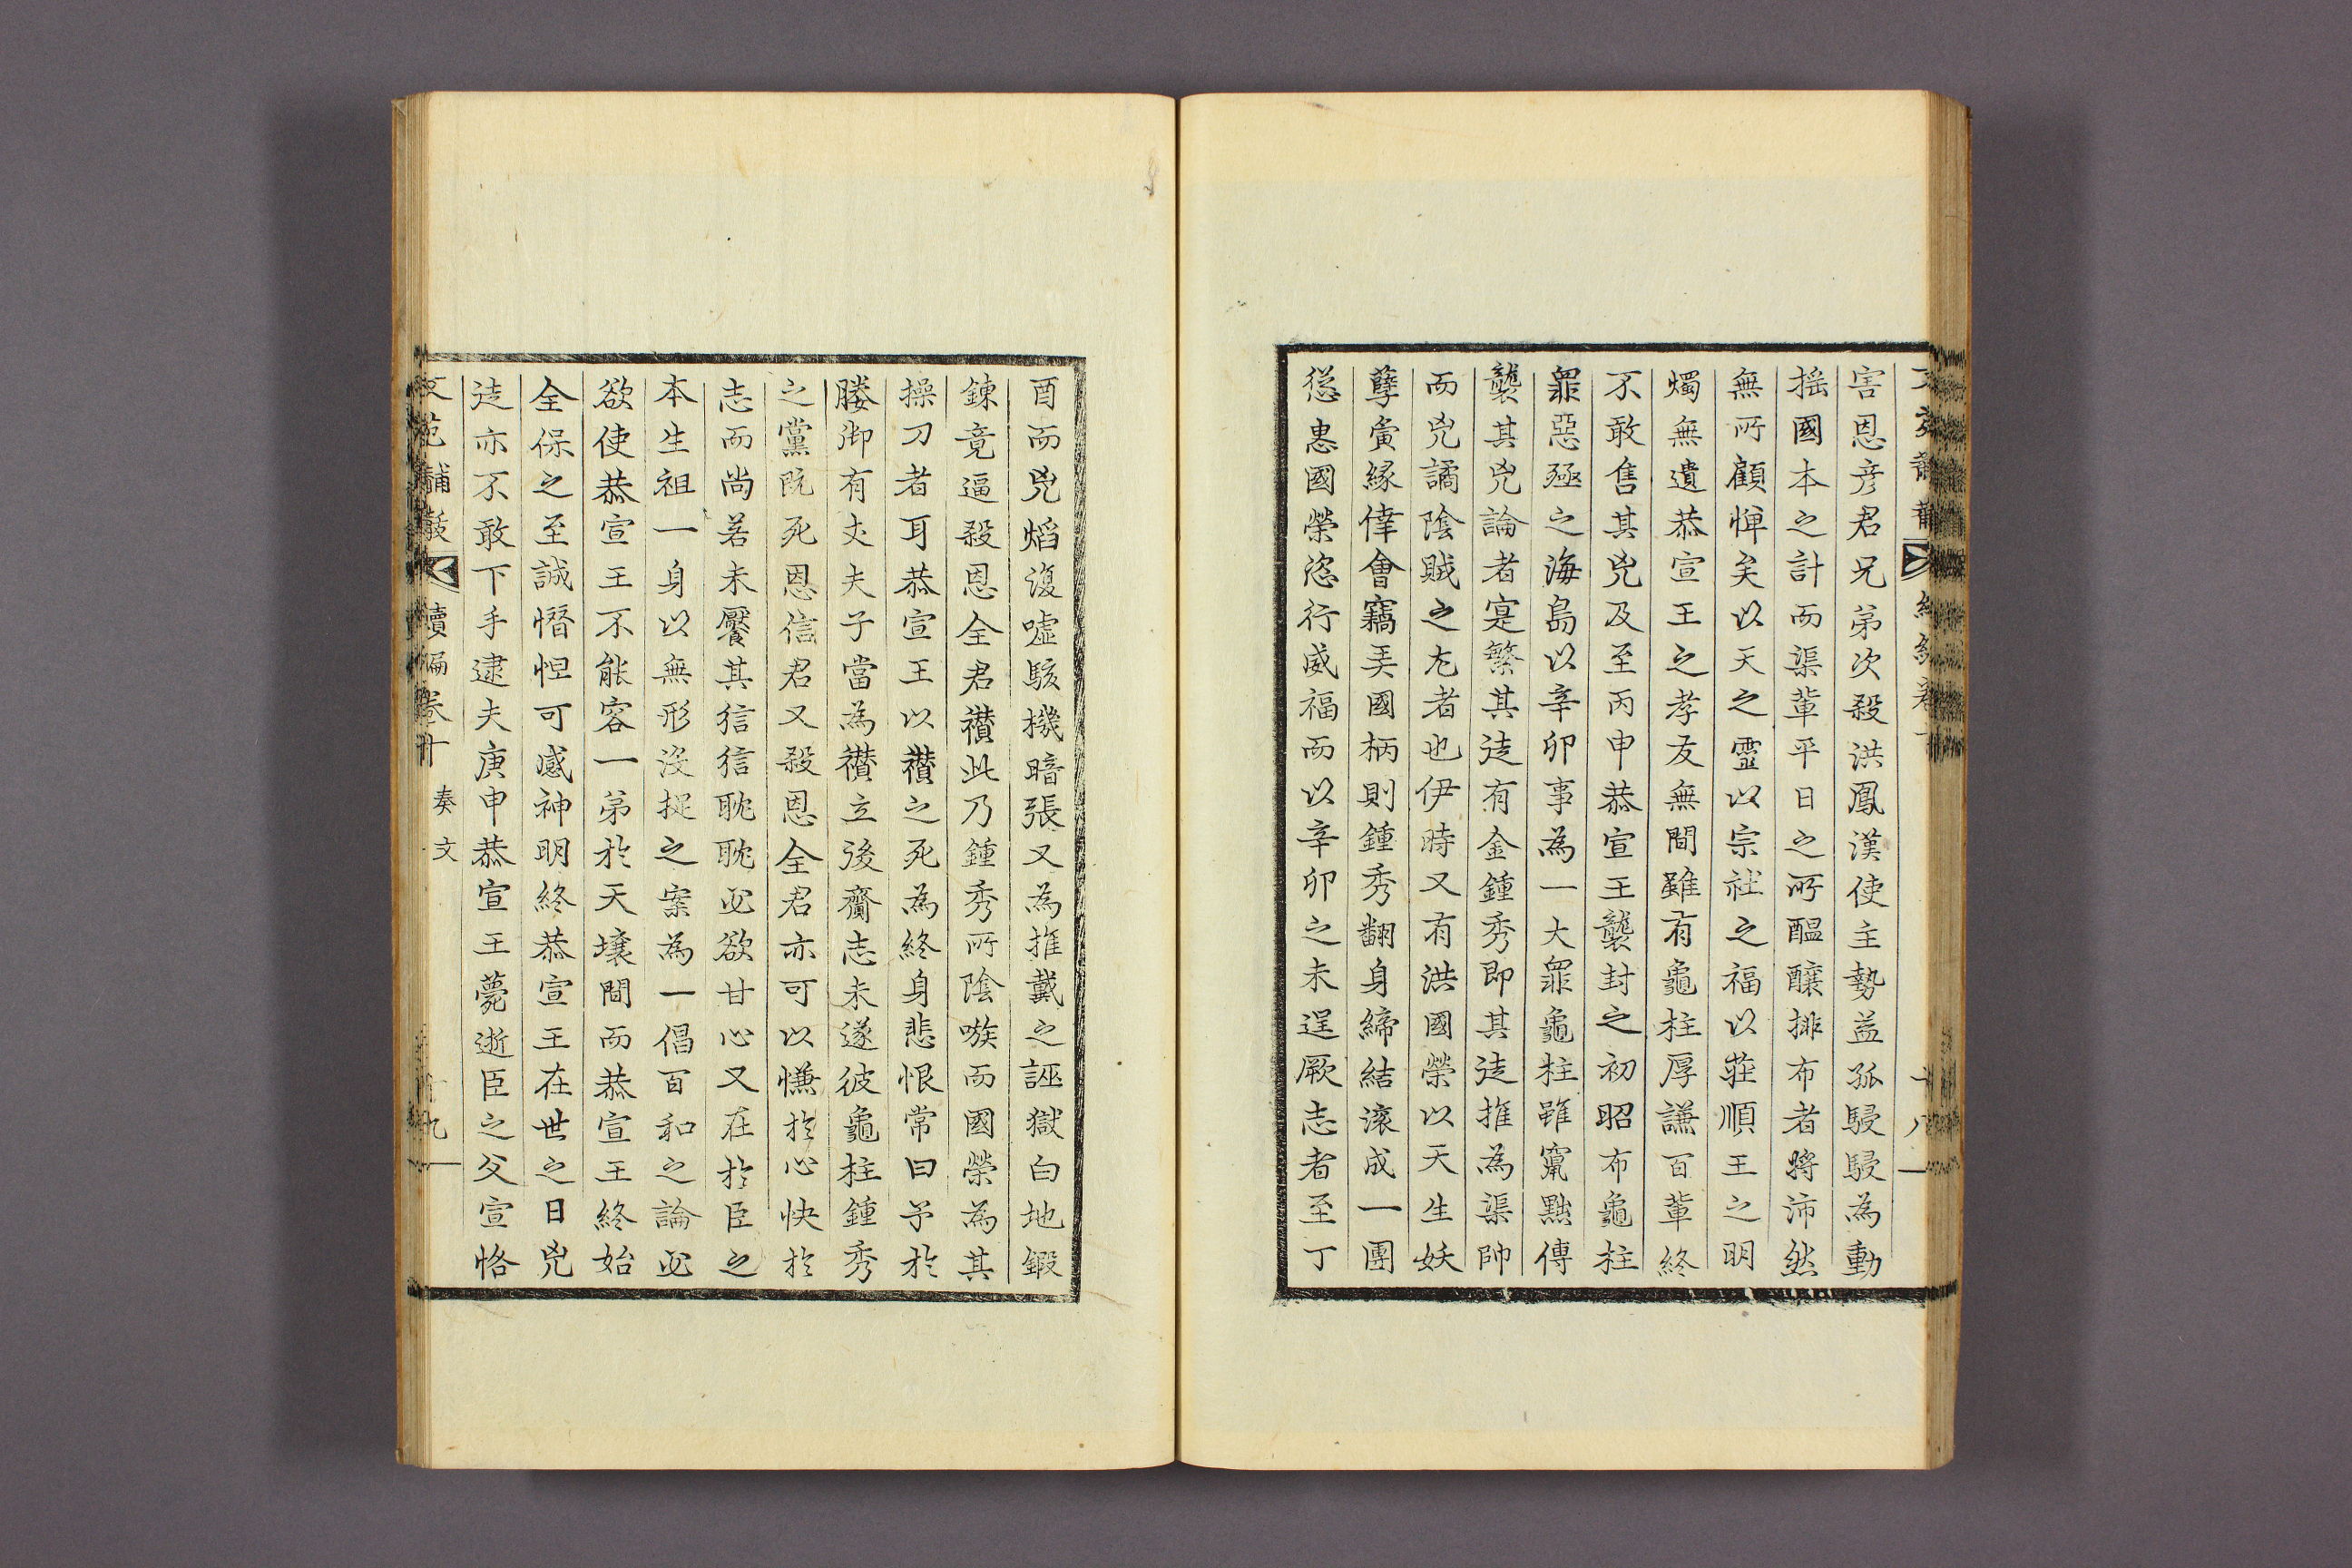 害恩彦君兄弟次殺洪鳳漢使主勢益孤駸駸為動
搖國本之計而渠輩平日之所醞釀排布者將沛然
無所顧憚矣以天之靈以宗社之福以莊順王之明
燭無遺恭宣王之孝友無間雖有龜柱厚謙百輩終
不敢售其兇及至丙申恭宣王襲封之初昭布龜柱
罪惡殛之海島以辛卯事為一大罪龜柱雖竄黜傳
襲其兇論者寔繁其徒有金鍾秀即其徒推為渠帥
而兇譎陰賊之尤者也伊時又有洪國榮以天生妖
孽夤緣倖會竊弄國柄則鍾秀翻身締結滚成一團
慫恿國榮恣行威福而以辛卯之未逞厥志者至丁
酉而兇熖復噓駭機暗張又為推戴之誣獄白地鍛
鍊竟逼殺恩全君禶此乃鍾秀所陰嗾而國榮為其
操刀者耳恭宣王以禶之死為終身悲恨常曰予於
媵御有丈夫子當為禶立後齎志未遂彼龜柱鍾秀
之黨既死恩信君又殺恩全君亦可以慊於心快於
志而尚若未饜其狺狺耽耽必欲甘心又在於臣之
本生祖一身以無形沒捉之案為一倡百和之論必
欲使恭宣王不能容一弟於天壤間而恭宣王終始
全保之至誠慴怛可感神明終恭宣王在世之日兇
徒亦不敢下手逮夫庚申恭宣王薨逝臣之父宣恪
文苑黼黻 續編卷十 奏文 十九